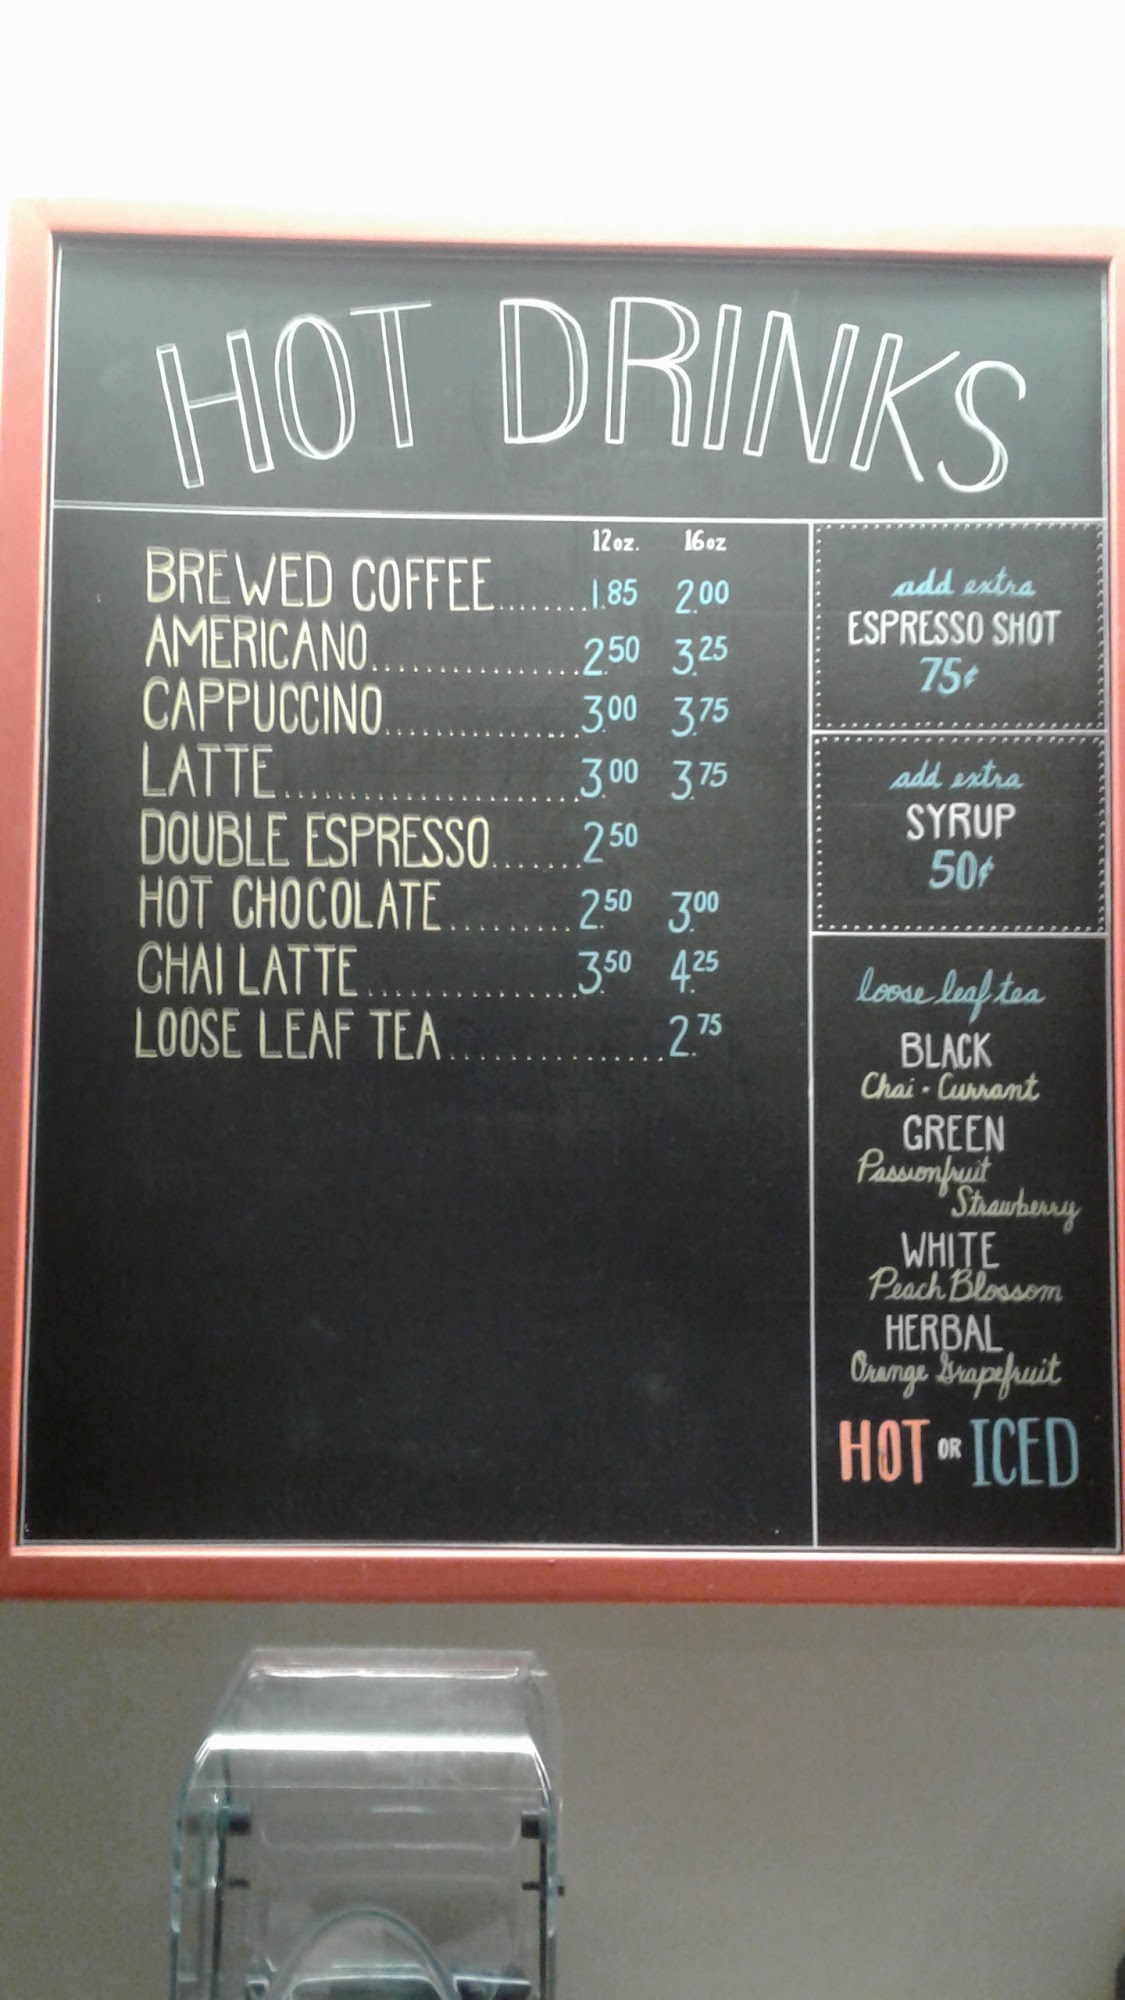 HOT DRINKS
12oz. 16oz
BREWED COFFEE........1.85 2.00
AMERICANO...............2.50 3.25
CAPPUCCINO..............3.00 3.75
LATTE......................3.00 3.75
DOUBLE ESPRESSO......2.50
HOT CHOCOLATE.........2.50 3.00
CHAI LATTE...............3.50 4.25
LOOSE LEAF TEA...............2.75
add extra
ESPRESSO SHOT
75¢
add extra
SYRUP
50¢
loose leaf tea
BLACK
Chai - Currant
GREEN
Passionfruit
Strawberry
WHITE
Peach Blossom
HERBAL
Orange Grapefruit
HOT OR ICED